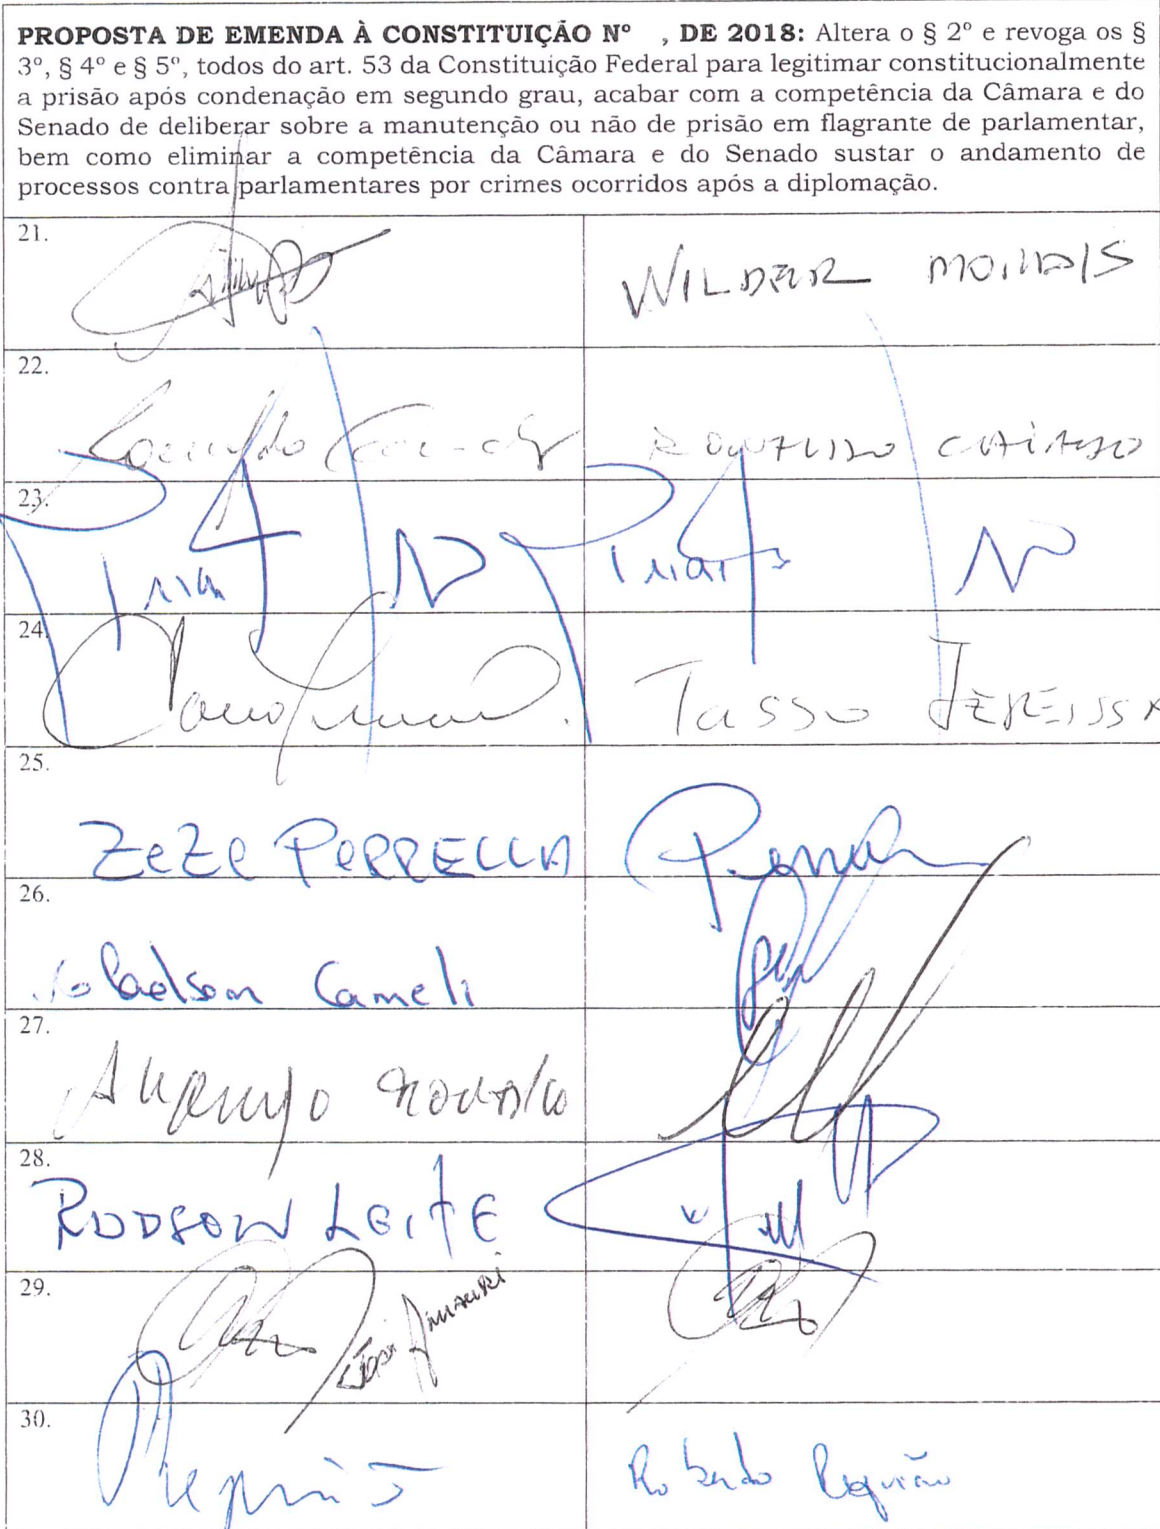 PROPOSTA DE EMENDA À CONSTITUIÇÃO Nº , DE 2018: Altera o § 2º e revoga os §
3º, § 4º e § 5º, todos do art. 53 da Constituição Federal para legitimar constitucionalmente
a prisão após condenação em segundo grau, acabar com a competência da Câmara e do
Senado de deliberar sobre a manutenção ou não de prisão em flagrante de parlamentar,
bem como eliminar a competência da Câmara e do Senado sustar o andamento de
processos contra parlamentares por crimes ocorridos após a diplomação.
21.
WILDER MORAIS
22.
RONALDO CAIADO
23.
24.
TASSO JEREISSA
25.
ZEZE PERRELLA
26.
Gladson Cameli
27.
28.
RUDSON LEITE
29.
30.
Requião
Roberto Requião